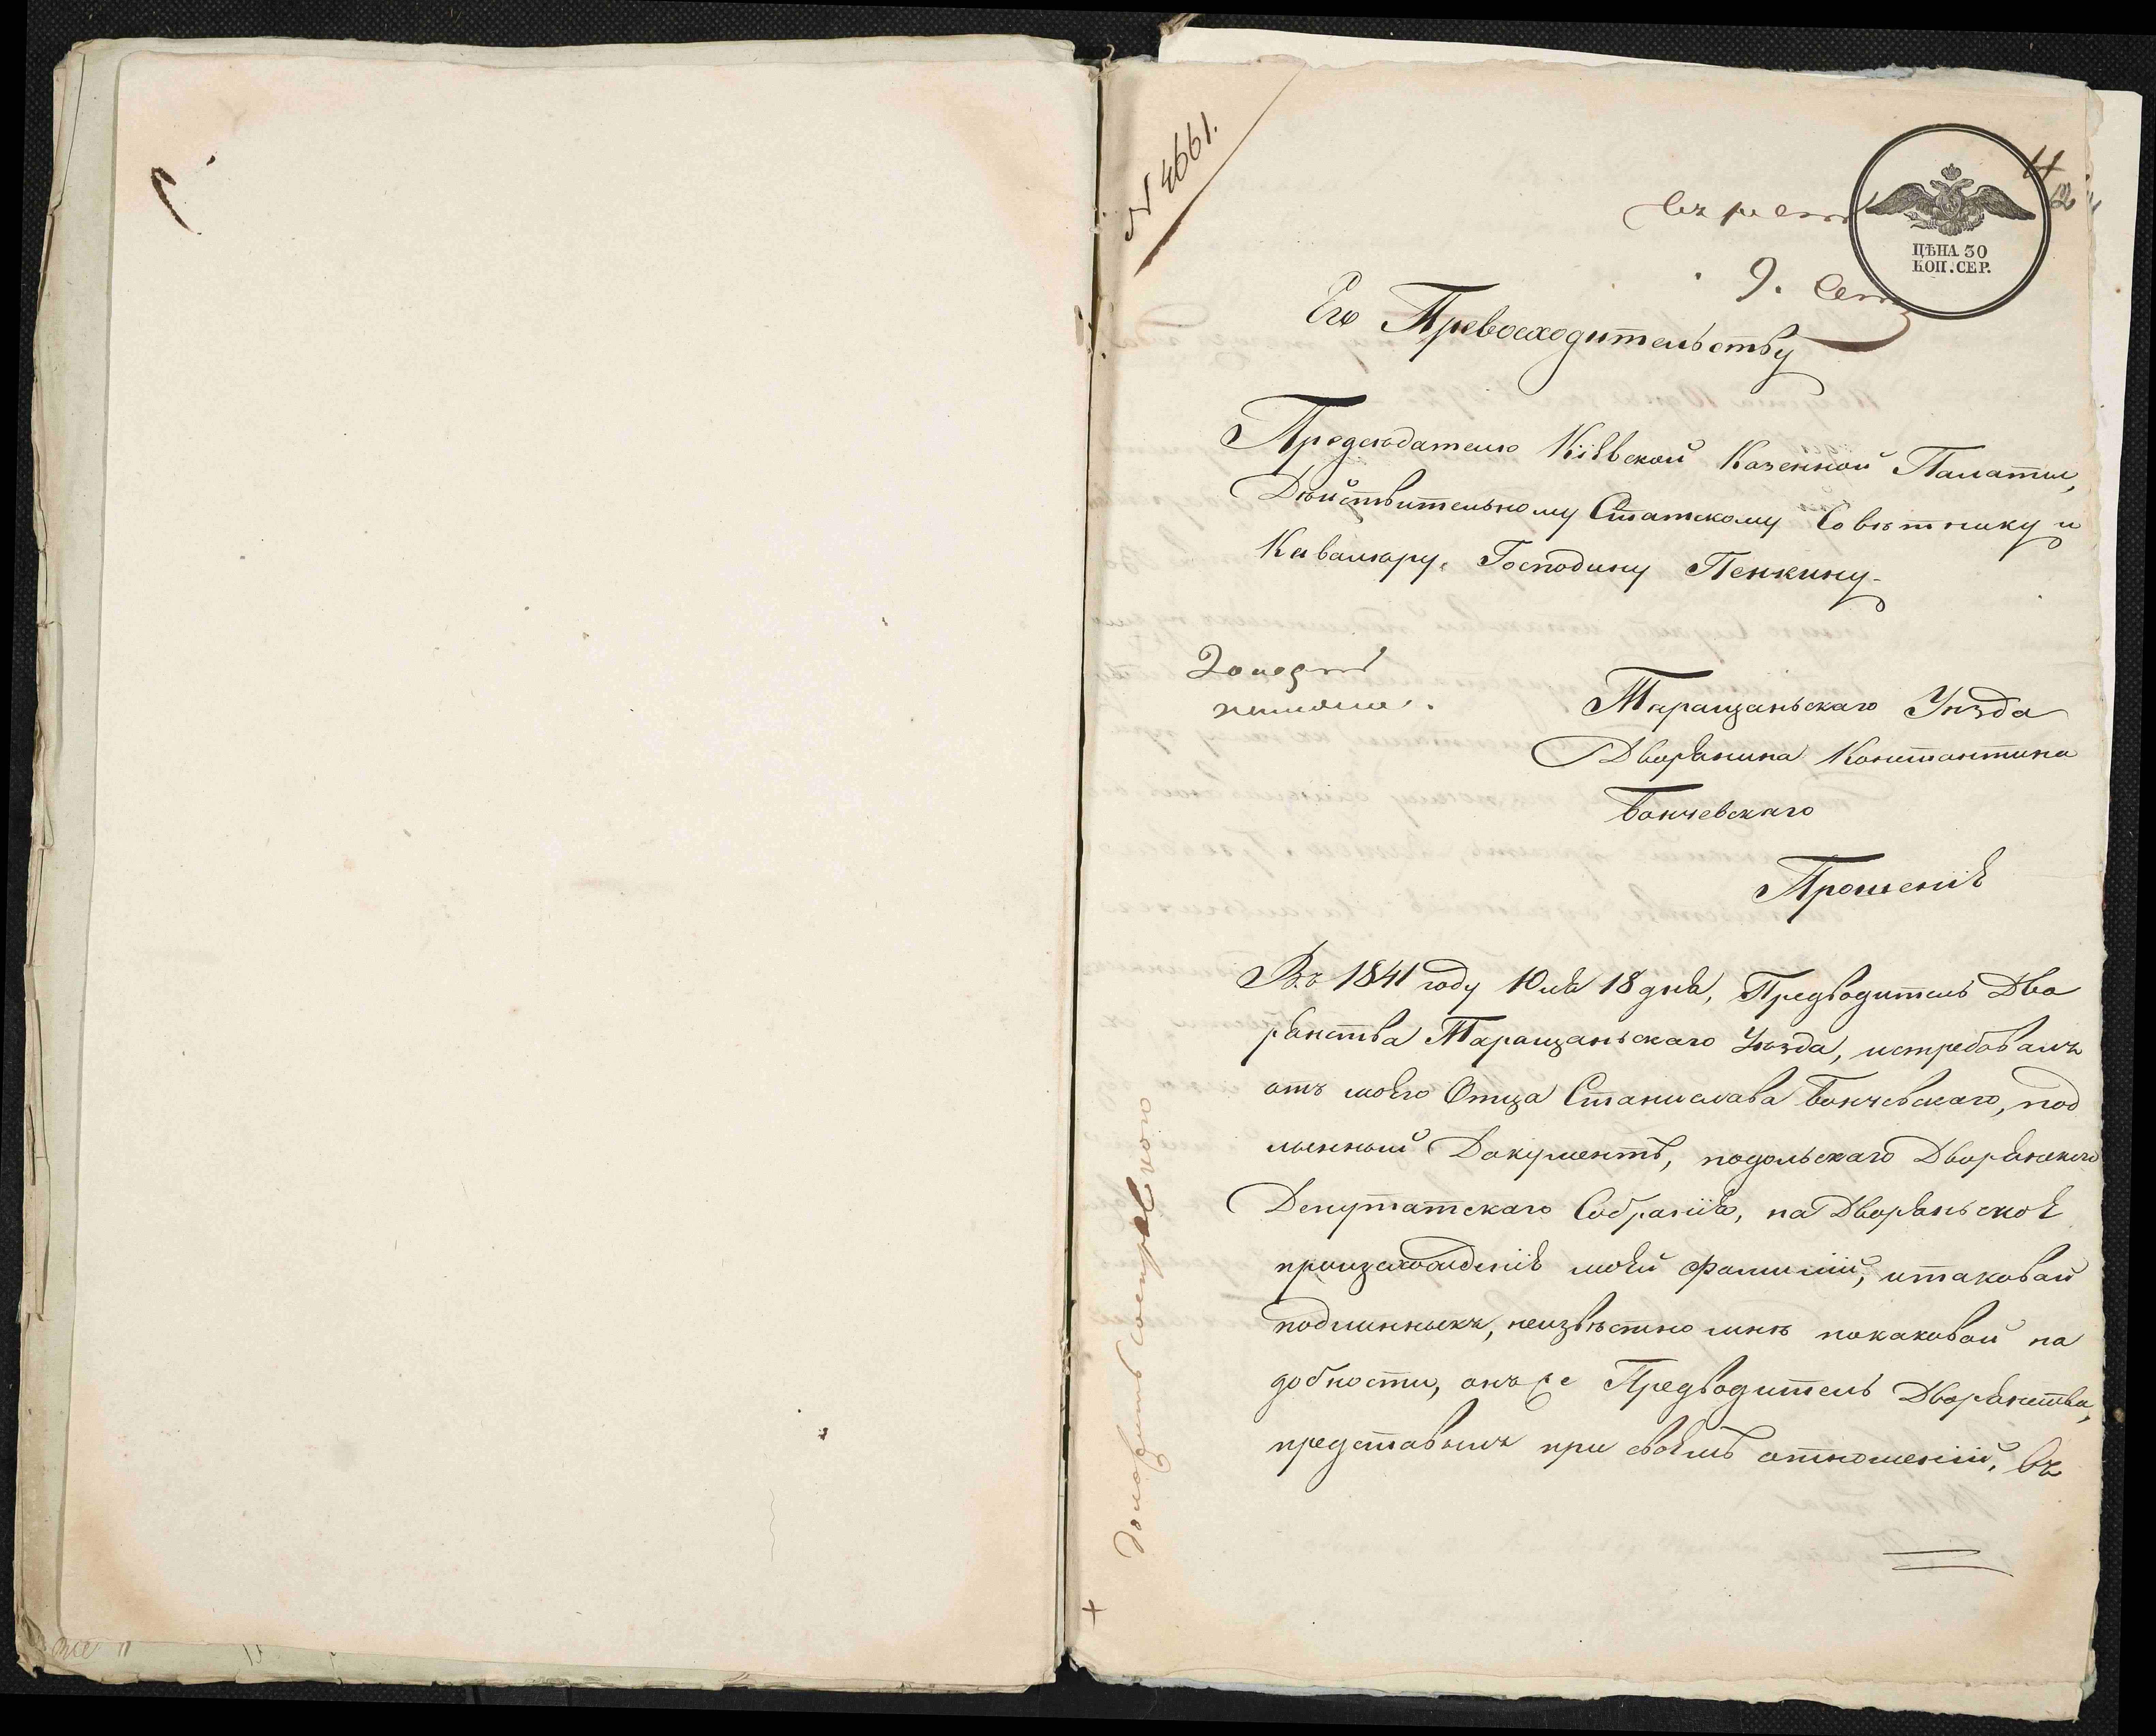 № 4661.
11
12
ЦѢНА 30
КОП. СЕР.
9. Сент
Его Превосходительству
Председателю Кіевской Казенной Палаты,
Дѣйствительному Статскому Совѣтнику и
Кавалѣру, Господину Пенкину.
Таращаньскаго Уѣзда
Дворянина Константина
Бончевскаго
Прошеніе
Въ 1841 году Юля 18 дня, Предводитель Дво
рянства Таращаньскаго Уѣзда, истребовалъ
отъ моего Отца Станислава Бончевскаго, под
лынный Документъ, подольскаго Дворянскаго
Депутатскаго Собранія, на Дворяньское
проызхожденіе моей фамиліи, итаковой
подлинныкъ, неизвѣстно мнѣ покаковой на
добности, онъ же Предводитель Дворянства,
представылъ при своемъ отношеніи, въ